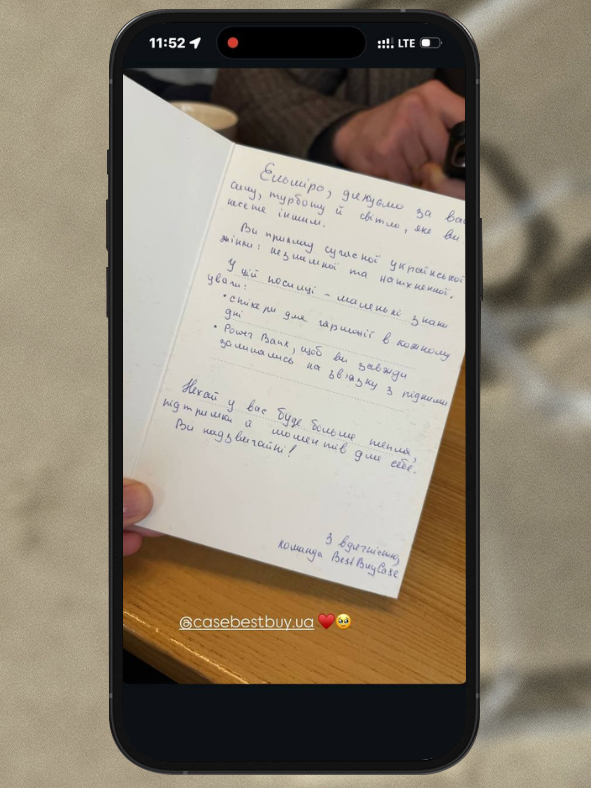 11:52
LTE
Ельміро, дякуємо за
силу, турботу й світло, яке ви
несете іншим.
Ви приклад сучасної української
жінки: незламної та натхненної.
У цій посилці – маленькі знаки
уваги:
• стікери для гармонії в кожному
дні
• Power Bank, щоб ви завжди
залишались на зв'язку з рідними
Нехай у вас буде більше тепла,
підтримки й моментів для себе.
Ви надзвичайні!
З вдячністю,
команда BestBuyCase
@casebestbuy.ua ❤️🥹